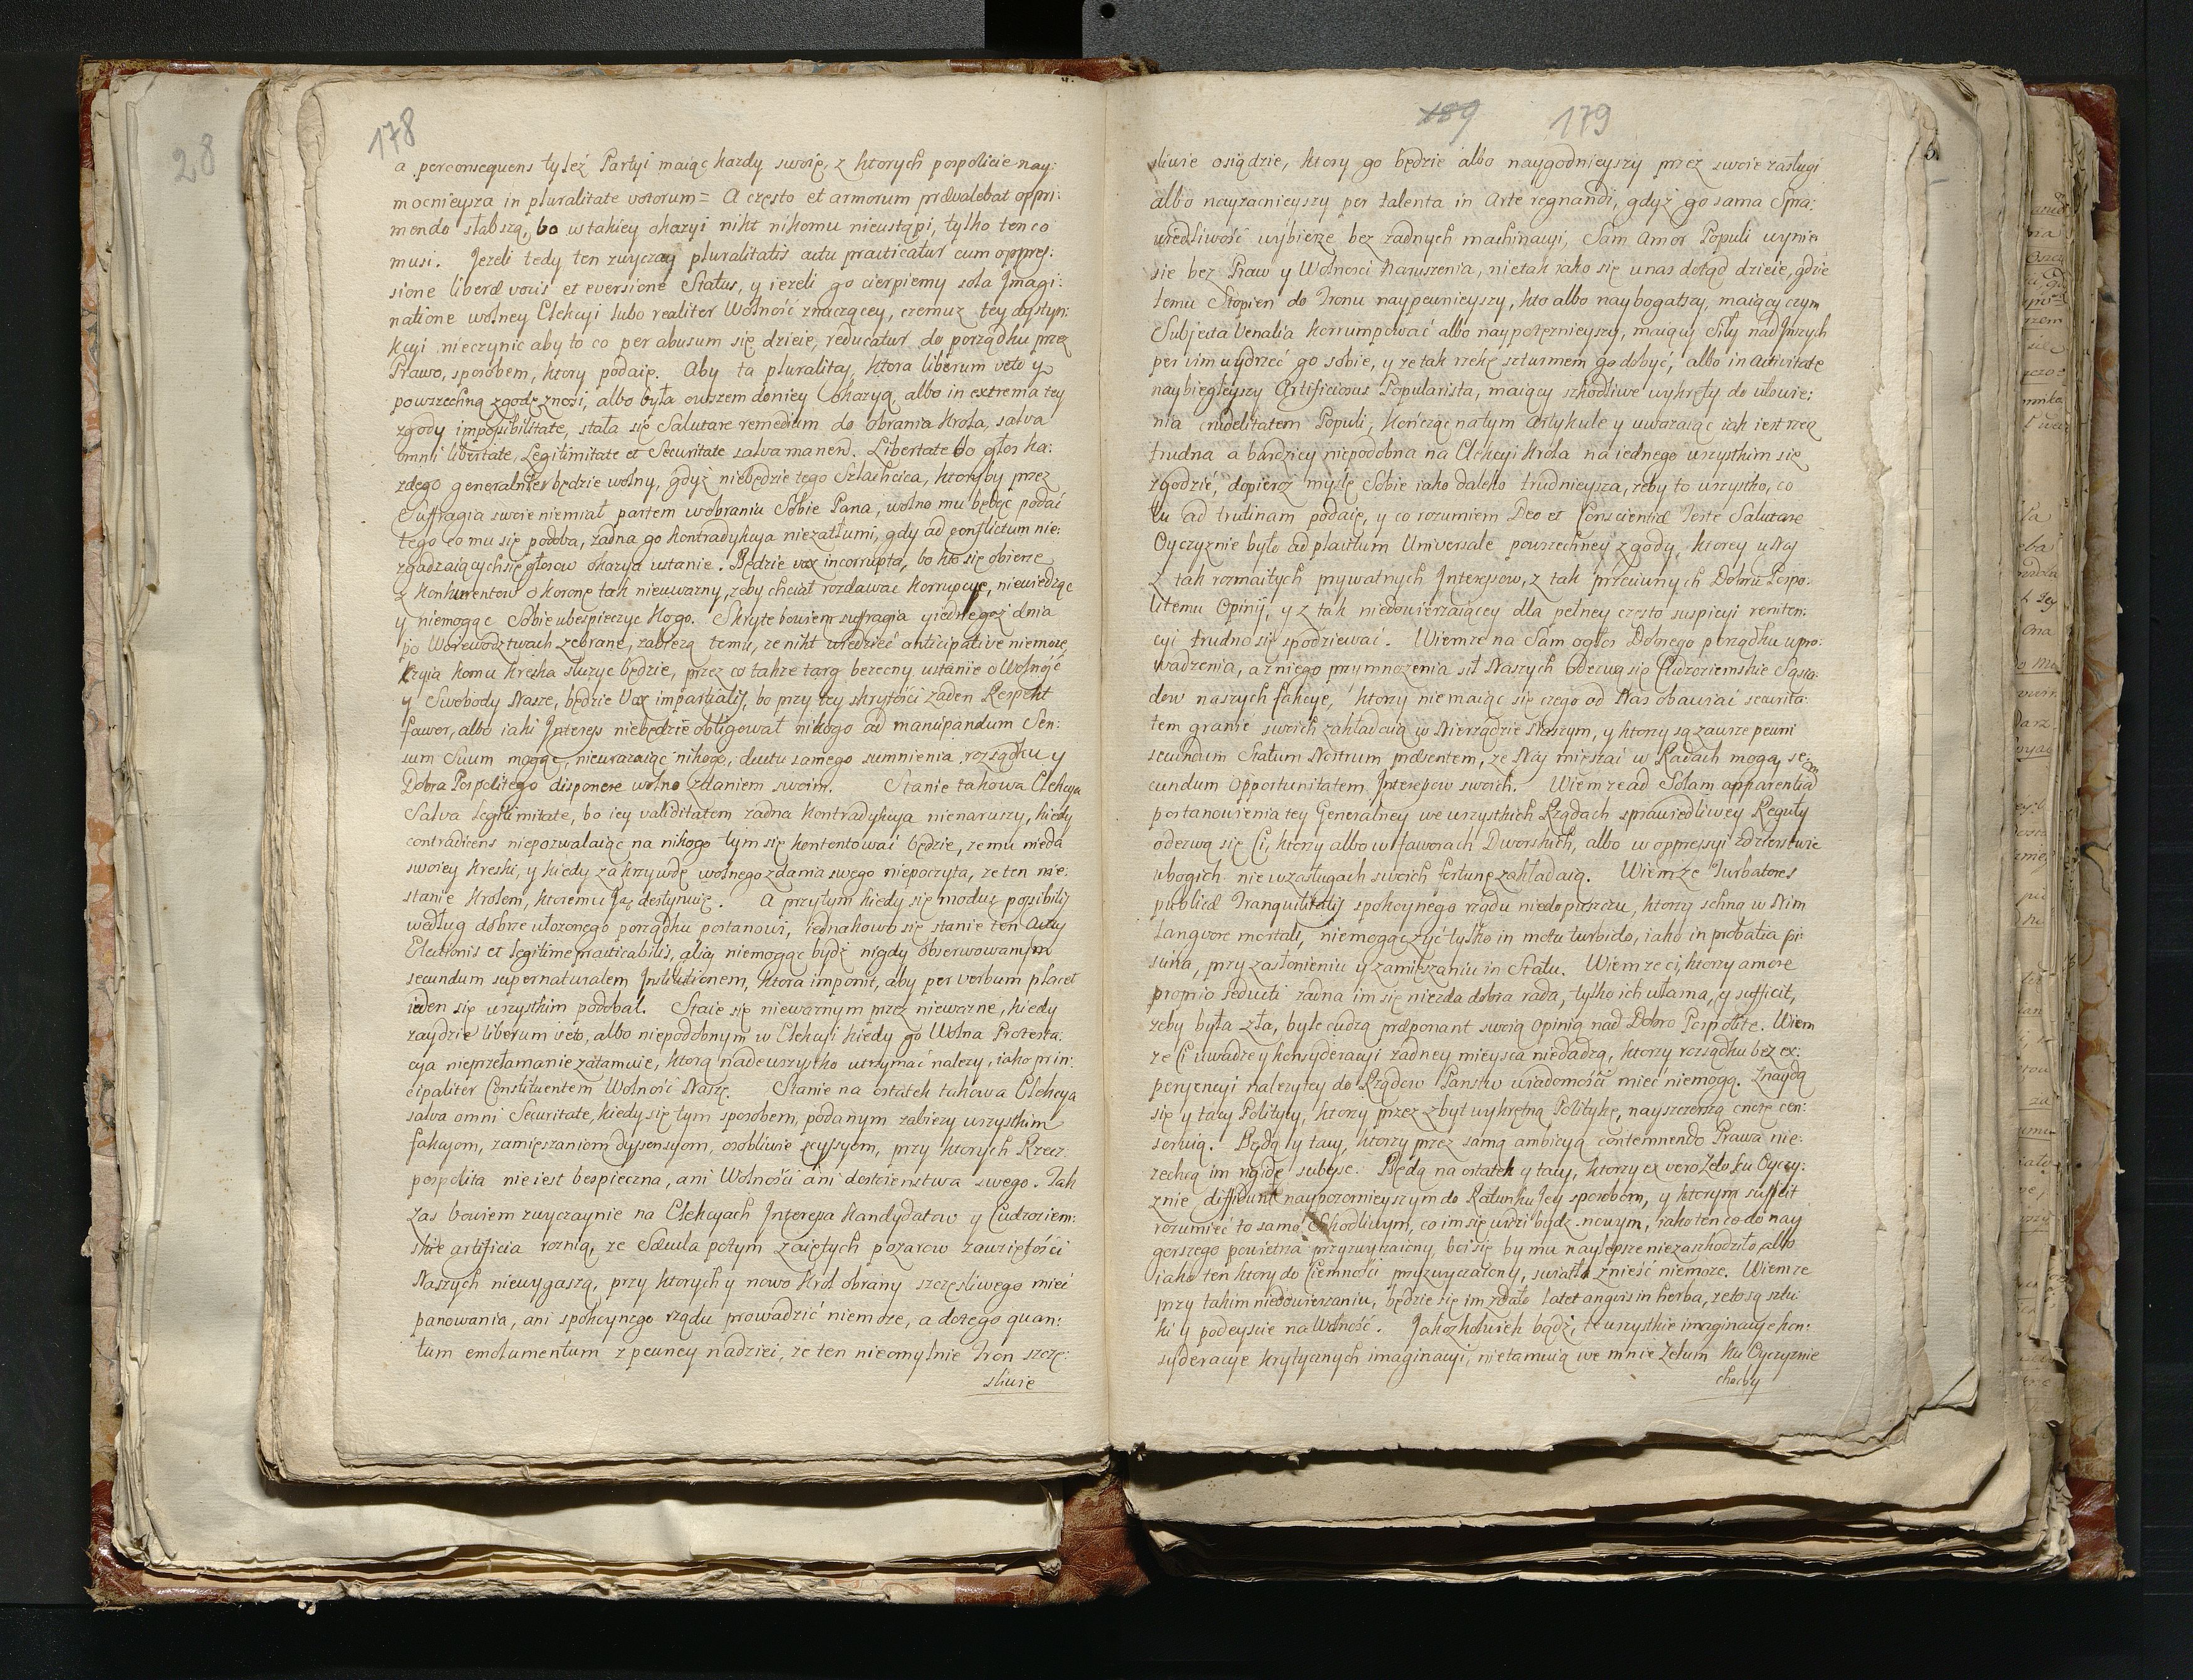 178
28
a perconsequens tyleż Partyi maiąc kazdy swoię, z ktorych pospolicie nay:
mocnieysza in pluralitate votorum = A często et armorum prævalebat oppri:
mendo słabszą, bo w takiey okazyi nikt nikomu nieustąpi, tylko ten co
musi. Jezeli tedy ten zwyczay pluralitatis actu practicatur cum oppres:
sione liberæ vocis et eversione Status, y iezeli go cierpiemy sola Imagi:
natione wolney Elekcyi lubo realiter Wolność znaczącey, czemuz tey dystyn:
kcyi nieczynic aby to co per abusum się dzieie, reducatur do porządku przez
Prawo, sposobem, ktory podaię. Aby ta pluralitas, ktora liberum veto y
powszechną zgodę znosi, albo była owszem doniey okazyą, albo in extrema tey
zgody impossibilitate, stała się Salutare remedium do obrania Krola, salva
omni libertate, Legitimitate et Securitate salva manend. Libertate bo głos ka:
zdego generalnie będzie wolny, gdyż niebędzie tego Szlachcica, ktoryby przez
Suffragia swoie niemiał partem w obraniu Sobie Pana, wolno mu będąc podać
tego co mu się podoba, żadna go kontradykcya niezatłumi, gdy ad conflictum nie:
zgadzaiących się głosow okazya ustanie. Będzie vox incorrupta, bo kto się obierze
z Konkurentow o koronę tak nieuważny, zeby chciał rozdawac korrupcye, niewiedząc
y niemogąc Sobie ubespieczyc kogo. Skryte bowiem suffragia y iednegoż dnia
po Woiewodztwach zebrane, zabieżą temu, ze nikt wiedzieć anticipative niemoze,
czyia komu kreska służyc będzie, przez co takze targ bezecny ustanie o Wolność
y Swobody Nasze, będzie Vox impartialis, bo przy tey skrytości żaden Respekt
fawor, albo iaki Interess niebędzie obligował nikogo ad mancipandum Sen:
sum Suum mogąc, nieuwazaiąc nikogo, ductu samego sumnienia, rozsądku y
Dobra Pospolitego disponere wolno zdaniem swoim. Stanie takowa Elekcya
Salva Legitimitate, bo iey validitatem żadna kontradykcya nienaruszy, kiedy
contradicens niepozwalaiąc na nikogo tym się kontentować będzie, ze mu nieda
swoiey kreski, y kiedy za krzywdę wolnego zdania swego niepoczyta, ze ten nie:
stanie Krolem, ktoremu Ją destynuię. A przytym kiedy się modus possibilis
według dobrze ułozonego porządku postanowi, iednakowo się stanie ten Actus
Electionis et legitime practicabilis, alias niemogąc bydź nigdy obserwowanym
secundum supernaturalem Institutionem, ktora imponit, aby per verbum placet
ieden się wszystkim podobał. Staie się nieważnym przez nieważne, kiedy
zaydzie liberum veto, albo niepodobnym w Elekcyi kiedy go Wolna Protesta:
cya nieprzełamanie zatamuie, ktorą nadewszystko utrzymać nalezy, iako prin:
cipaliter Constituentem Wolność Naszę. Stanie na ostatek takowa Elekcya
salva omni Securitate, kiedy się tym sposobem podanym zabiezy wszystkim
fakcyom, zamięszaniom dyssensyom, osobliwie scyssyom, przy ktorych Rzecz:
pospolita nie iest bespieczna, ani Wolności ani dostoienstwa swego. Jak
Zas bowiem zwyczaynie na Elekcyach Interessa Kandydatow y Cudzoziem:
skie artificia roznią, ze Sæcula potym zaiętych pozarow zawziętości
Naszych niewygaszą, przy ktorych y nowo Krol obrany szczęsliwego mieć
panowania, ani spokoynego rządu prowadzić niemoze, a dotego quan:
tum emolumentum z pewney nadziei, ze ten nieomylnie Tron szczę:
sliwie
189 179
sliwie osiądzie, ktory go będzie albo naygodnieyszy przez swoie zasługi
albo nayzacnieyszy per talenta in Arte regnandi, gdyż go sama Spra:
wiedliwość wybierze bez zadnych machinacyi, Sam Amor Populi wynie:
sie bez Praw y Wolnosci Naruszenia, nietak iako się u nas dotąd dzieie, gdzie
temu Stopień do Tronu naypewnieyszy, kto albo naybogatszy, maiący czym
Subjecta Venalia korrumpować albo naypotęznieyszy, maiący Siły nad Inszych
per vim wydrzeć go sobie, y ze tak rzekę szturmem go dobyć, albo in activitate
naybiegleyszy Artificiosus Popularista, maiący szkodliwe wykręty do ułowie:
nia crudelitatem Populi, Kończąc na tym Artykule y uwazaiąc iak iest rzecz
trudna a bardziey niepodobna na Elekcyi Krola na iednego wszystkim się
zgodzić, dopieroż myślę Sobie iako daleko trudnieysza, zeby to wszystko, co
tu ad trutinam podaię, y co rozumiem Deo et Conscientiæ Teste Salutare
Oyczyznie było ad placitum Universale powszechney zgody, ktorey u Nas
z tak rozmaitych prywatnych Interessow, z tak przeciwnych Dobru Pospo:
litemu Opinij, y z tak niedowierzaiącey dla pełney często suspicyi reniten:
cyi trudno się spodziewać. Wiem ze na Sam ogłos Dobrego porządku wpro:
wadzenia, a z niego przymnozenia sił Naszych oderwą się Cudzoziemskie Sąsia:
dow naszych fakcye, ktorzy nie maiąc się czego od Nas obawiać securita:
tem granic swoich zakładaią w Nierządzie Naszym, y ktorzy są zawsze pewni
secundum Statum Nostrum præsentem, ze Nas mięszać w Radach mogą, se:
cundum Opportunitatem Interessow swoich. Wiem ze ad Solam apparentiam
postanowienia tey Generalney we wszystkich Rządach sprawiedliwey Reguły
oderwą się Ci, ktorzy albo w faworach Dworskich, albo w oppressyi zdzierstwie
ubogich nie w zasługach swoich fortunę zakładaią. Wiem ze Turbatores
publicæ Tranquilitatis spokoynego rządu niedopuszczą, ktorzy schną w Nim
languore mortali, niemogąc żyć tylko in motu turbido, iako in probatia pi:
scina, przy zasłonieniu y zamięszaniu in Statu. Wiem ze ci, ktorzy amore
proprio seducti zadna im się niezda dobra rada, tylko ich własna, y sufficit,
zeby była zła, byle cudzą præponant swoią Opinią nad Dobro Pospolite. Wiem
ze Ci uwadze y konsyderacyi zadney mieysca niedadzą, ktorzy rozsądku bez ex:
peryencyi nalezytey do Rządow Panstw wiadomości mieć niemogą. Znaydą
się y tacy Politycy, ktorzy przez zbyt wykrętną Politykę, nayszczerszą cnotę cen:
soruią. Będą y tacy, ktorzy przez samą ambicyą contemnendo Prawa nie:
zechcą im nigdy subesse. Będą na ostatek y tacy, ktorzy ex vero Zelo ku Oyczy:
znie diffidunt naypozornieyszym do Ratunku Jey sposobom, y ktorym sufficit
rozumieć to samo Szkodliwym, co im się widzi bydz nowym, iako ten co do nay
gorszego powietrza przyzwyczaiony, boi się by mu naylepsze niezaszkodziło, albo
iako ten ktory do Ciemności przyzwyczaiony, swiatła znieść niemoze. Wiem ze
przy takim niedowierzaniu, będzie się im zdało latet anguis in herba, ze to są sztu:
ki y podeyscie na Wolność. Jakozkolwiek bądź, te wszystkie imaginacye kon:
syderacye krytycznych imaginacyi, nietamuią we mnie Zelum ku Oyczyznie
chocby